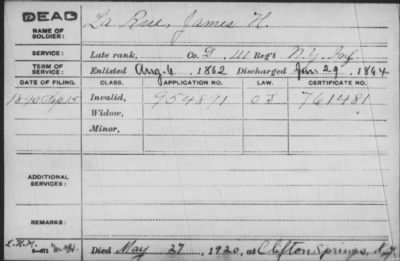 DEAD
NAME OF SOLDIER: La Rue, James H.
SERVICE: Late rank, Co. D, 111 Reg't N.Y. Inf.
TERM OF SERVICE: Enlisted Aug. 6, 1862 Discharged Jan. 29, 1864
DATE OF FILING. CLASS. APPLICATION NO. LAW. CERTIFICATE NO.
1890 Sep 15 Invalid, 954891 O J 761481
Widow,
Minor,
ADDITIONAL SERVICES:
REMARKS:
Died May 27, 1920, at Clifton Springs, N.Y.